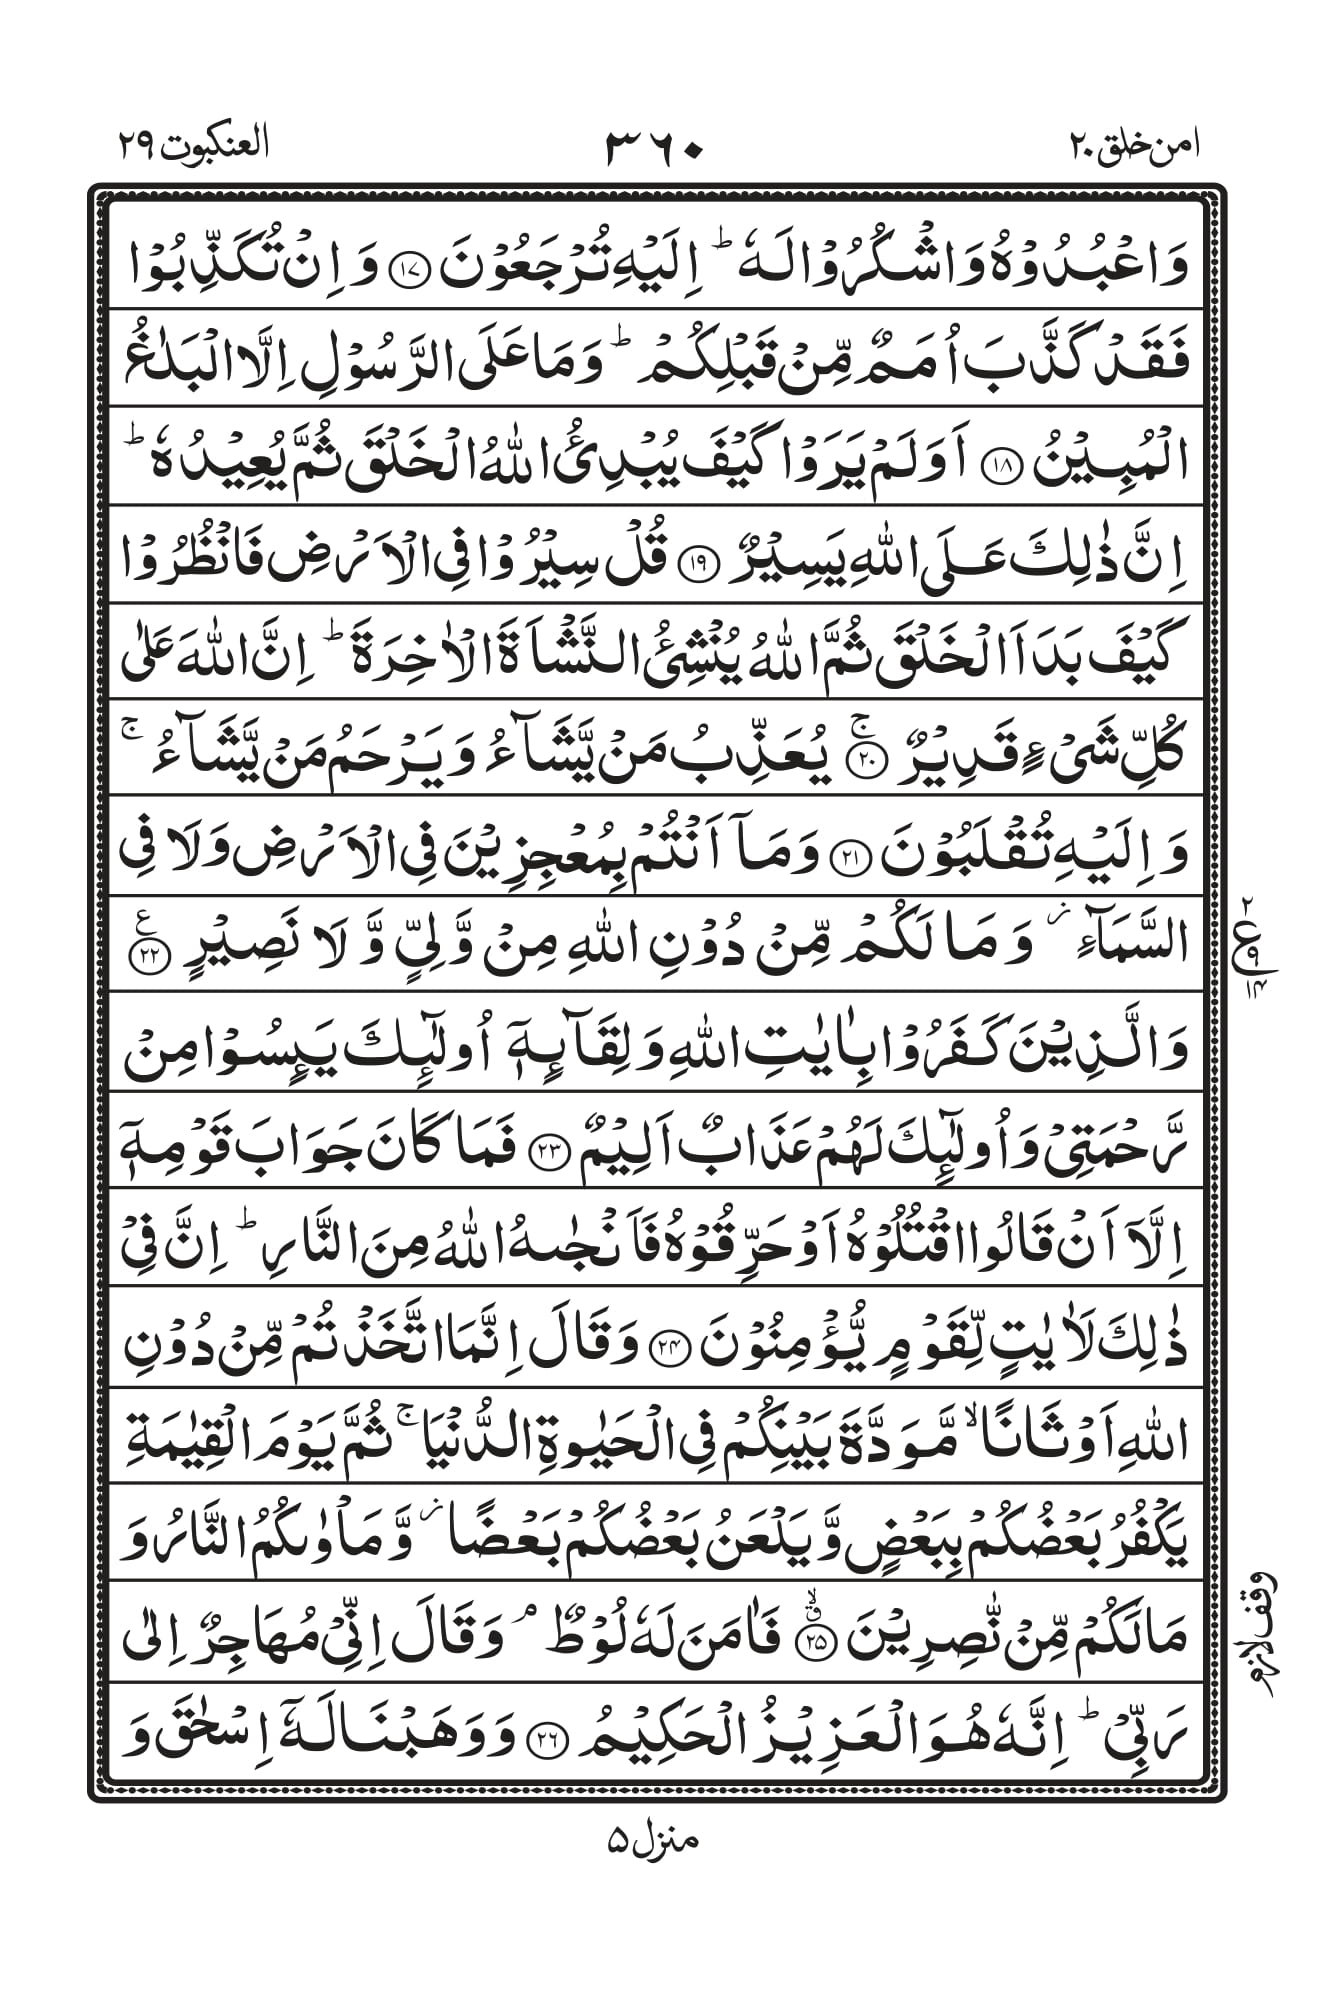 امن خلق ۲۰
۳۶۰
العنکبوت ۲۹
وَاعۡبُدُوۡهُ وَاشۡكُرُوۡا لَهٗ ؕ اِلَيۡهِ تُرۡجَعُوۡنَ ۝۱۷ وَ اِنۡ تُكَذِّبُوۡا
فَقَدۡ كَذَّبَ اُمَمٌ مِّنۡ قَبۡلِكُمۡ ؕ وَمَا عَلَى الرَّسُوۡلِ اِلَّا الۡبَلٰغُ
الۡمُبِيۡنُ ۝۱۸ اَوَلَمۡ يَرَوۡا كَيۡفَ يُبۡدِئُ اللّٰهُ الۡخَلۡقَ ثُمَّ يُعِيۡدُهٗ ؕ
اِنَّ ذٰلِكَ عَلَى اللّٰهِ يَسِيۡرٌ ۝۱۹ قُلۡ سِيۡرُوۡا فِى الۡاَرۡضِ فَانْظُرُوۡا
كَيۡفَ بَدَاَ الۡخَلۡقَ ثُمَّ اللّٰهُ يُنۡشِئُ النَّشۡاَةَ الۡاٰخِرَةَ ؕ اِنَّ اللّٰهَ عَلٰى
كُلِّ شَىۡءٍ قَدِيۡرٌ ۝۲۰ۚ يُعَذِّبُ مَنۡ يَّشَآءُ وَيَرۡحَمُ مَنۡ يَّشَآءُ ۚ
وَاِلَيۡهِ تُقۡلَبُوۡنَ ۝۲۱ وَمَاۤ اَنۡتُمۡ بِمُعۡجِزِيۡنَ فِى الۡاَرۡضِ وَلَا فِى
السَّمَآءِ ز وَمَا لَكُمۡ مِّنۡ دُوۡنِ اللّٰهِ مِنۡ وَّلِىٍّ وَّلَا نَصِيۡرٍ ۝۲۲ ع
۲ ع ۹ ۱۴
وَالَّذِيۡنَ كَفَرُوۡا بِاٰيٰتِ اللّٰهِ وَلِقَآئِهٖۤ اُولٰٓئِكَ يَئِسُوۡا مِنۡ
رَّحۡمَتِىۡ وَاُولٰٓئِكَ لَهُمۡ عَذَابٌ اَلِيۡمٌ ۝۲۳ فَمَا كَانَ جَوَابَ قَوۡمِهٖۤ
اِلَّاۤ اَنۡ قَالُوا اقۡتُلُوۡهُ اَوۡ حَرِّقُوۡهُ فَاَنۡجٰٮهُ اللّٰهُ مِنَ النَّارِ ؕ اِنَّ فِىۡ
ذٰلِكَ لَاٰيٰتٍ لِّقَوۡمٍ يُّؤۡمِنُوۡنَ ۝۲۴ وَقَالَ اِنَّمَا اتَّخَذۡتُمۡ مِّنۡ دُوۡنِ
اللّٰهِ اَوۡثَانًا ۙ مَّوَدَّةَ بَيۡنِكُمۡ فِى الۡحَيٰوةِ الدُّنۡيَا ۚ ثُمَّ يَوۡمَ الۡقِيٰمَةِ
يَكۡفُرُ بَعۡضُكُمۡ بِبَعۡضٍ وَّيَلۡعَنُ بَعۡضُكُمۡ بَعۡضًا ز وَّمَاۡوٰٮكُمُ النَّارُ وَ
مَا لَكُمۡ مِّنۡ نّٰصِرِيۡنَ ۝۲۵ ق ۙ فَاٰمَنَ لَهٗ لُوۡطٌ ۘ وَقَالَ اِنِّىۡ مُهَاجِرٌ اِلٰى
وقف لازم
رَبِّىۡ ؕ اِنَّهٗ هُوَ الۡعَزِيۡزُ الۡحَكِيۡمُ ۝۲۶ وَوَهَبۡنَا لَهٗۤ اِسۡحٰقَ وَ
منزل ۵